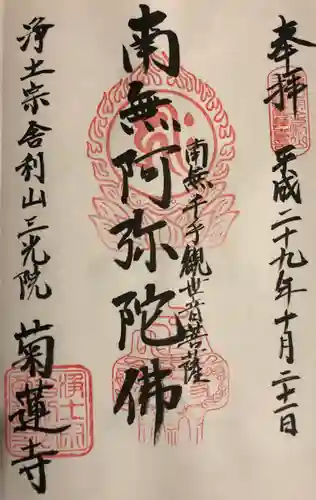 奉拝
平成二十九年十月二十一日
南無千手観世音菩薩
南無阿弥陀佛
浄土宗舎利山三光院
菊蓮寺